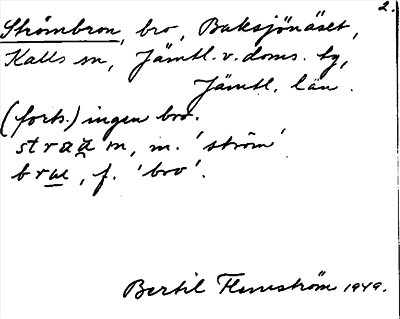 2.
Strömbron, bro, Baksjönäset,
Kalls sn, Jämtl. v. doms. tg,
Jämtl. län.
(forts.) ingen bro.
straa̯m, m. 'ström'
bræ, f. 'bro'.
Bertil Flemström 1949.